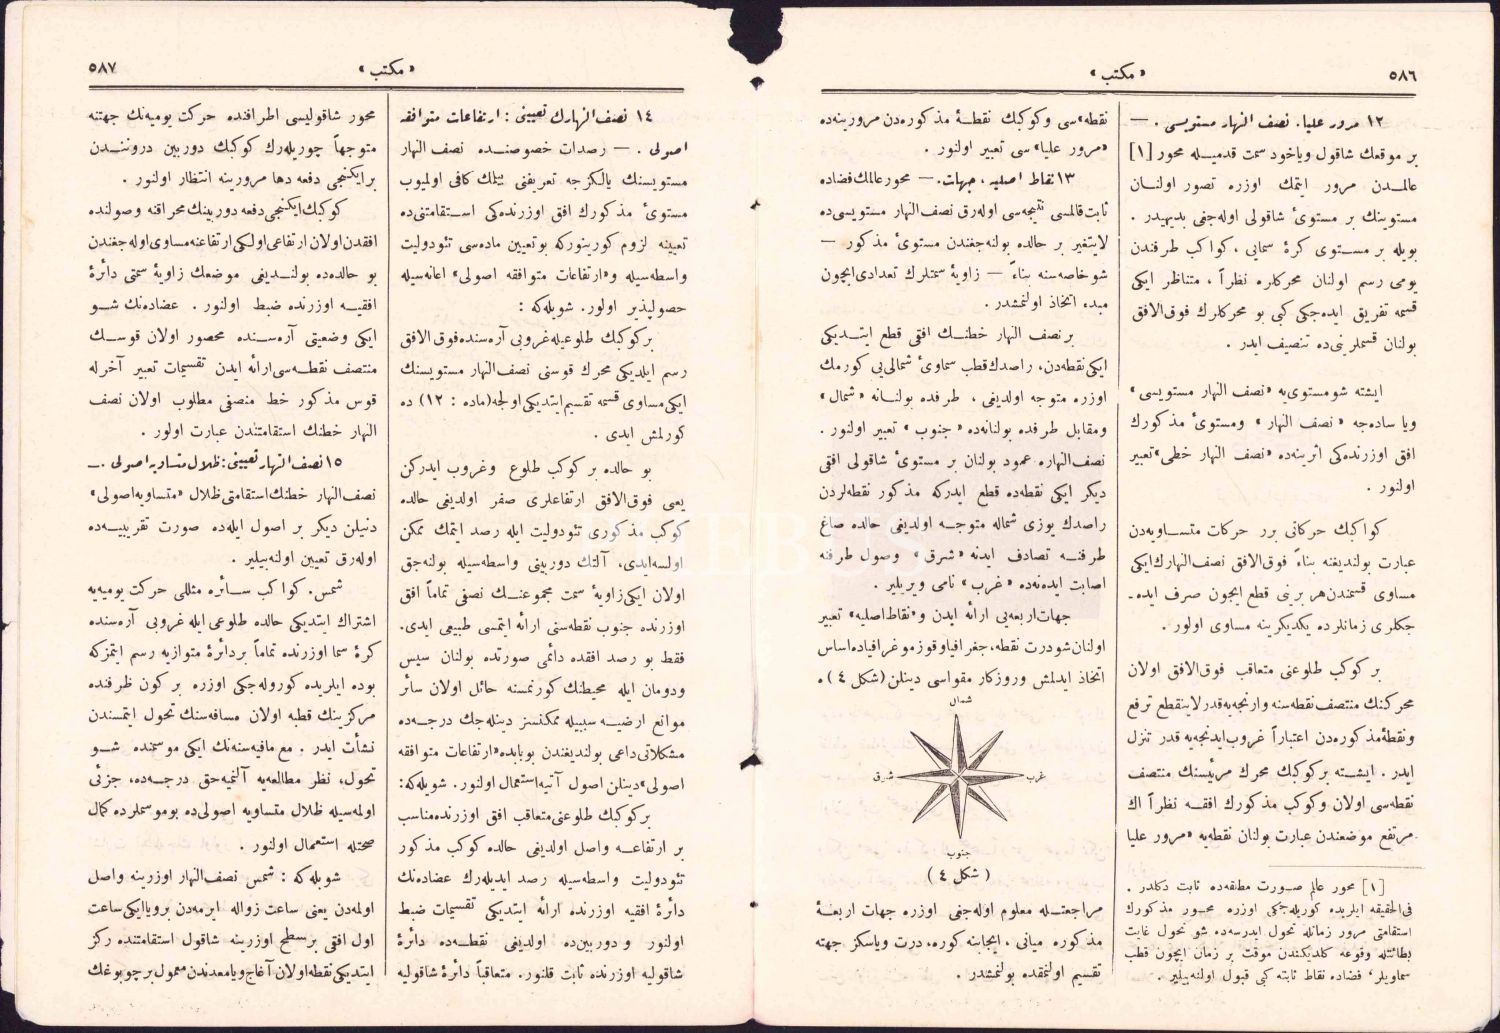 ٥٨٦
« مكتب »
١٢ مرور عليا ، نصف النهار مستويسى . —
بر موقعك شاقول وياخود سمت قدميله محور [١]
عالمدن مرور ايتمك اوزره تصور اولنان
مستوينك بر مستوئ شاقولى اوله جغى بديهيدر .
بويله بر مستوى كرهٔ سمايى ، كواكب طرفندن
يومى رسم اولنان محركلره نظراً ، متناظر ايكى
قسمه تفريق ايده جكى كبى بو محركلرك فوق الافق
بولنان قسملرينى ده تنصيف ايدر .
ايشته شو مستوى يه « نصف النهار مستويسى »
ويا ساده جه « نصف النهار » ومستوئ مذكورك
افق اوزرنده كى اثرينه ده « نصف النهار خطى » تعبير
اولنور .
كواكبك حركاتى برر حركات متساويه دن
عبارت بولنديغنه بناءً فوق الافق نصف النهارك ايكى
مساوى قسمندن هر برينى قطع ايچون صرف ايده -
جكلرى زمانلر ده يكديكرينه مساوى اولور .
بر كوكب طلوعنى متعاقب فوق الافق اولان
محركنك منتصف نقطه سنه وارنجه يه قدر لاينقطع ترفع
ونقطهٔ مذكوره دن اعتباراً غروب ايدنجه يه قدر تنزل
ايدر . ايشته بر كوكبك محرك مرئيسنك منتصف
نقطه سى اولان وكوكب مذكورك افقه نظراً اك
مرتفع موضعندن عبارت بولنان نقطه يه « مرور عليا
[١] محور عالم صورت مطلقه ده ثابت دكلدر .
فى الحقيقه ايلريده كوريله جكى اوزره محور مذكورك
استقامتى مرور زمانله تحول ايدرسه ده شو تحول غايت
بطائتله وقوعه كلديكندن موقت بر زمان ايچون قطب
سماويلر ، فضاده نقاط ثابته كبى قبول اولنه بيلير .
نقطه » سى وكوكبك نقطهٔ مذكوره دن مرورينه ده
« مرور عليا » سى تعبير اولنور .
١٣ نقاط اصليه ، جهات . — محور عالمك فضاده
ثابت قالمسى نتيجه سى اوله رق نصف النهار مستويسى ده
لايتغير بر حالده بولنه جغندن مستوئ مذكور —
شو خاصه سنه بناءً — زاويهٔ سمتلرك تعدادى ايچون
مبدء اتخاذ اولنمشدر .
بر نصف النهار خطنك افقى قطع ايتديكى
ايكى نقطه دن ، راصدك قطب سماوئ شمالى يى كورمك
اوزره متوجه اولديغى ، طرفده بولنانه « شمال »
ومقابل طرفده بولنانه ده « جنوب » تعبير اولنور .
نصف النهاره عمود بولنان بر مستوئ شاقولى افقى
ديكر ايكى نقطه ده قطع ايدركه مذكور نقطه لردن
راصدك يوزى شماله متوجه اولديغى حالده صاغ
طرفنه تصادف ايدنه « شرق » وصول طرفنه
اصابت ايدنه ده « غرب » نامى ويريلير .
جهات اربعه يى ارائه ايدن و « نقاط اصليه » تعبير
اولنان شو درت نقطه ، جغرافيا وقوزموغرافياده اساس
اتخاذ ايدلمش وروزكار مقواسى دينلن ( شكل ٤ ) ه
شمال
غرب
شرق
جنوب
( شكل ٤ )
مراجعتله معلوم اوله جغى اوزره جهات اربعهٔ
مذكوره ميانى ، ايجابنه كوره ، درت وياسكز جهته
تقسيم اولنمقده بولنمشدر .
« مكتب »
٥٨٧
١٤ نصف النهارك تعيينى : ارتفاعات متوافقه
اصولى . — رصدات خصوصنده نصف النهار
مستويسنك يالكزجه تعريفنى بيلمك كافى اولميوب
مستوئ مذكورك افق اوزرنده كى استقامتنى ده
تعيينه لزوم كورينوركه بو تعيين ماده سى تئودوليت
واسطه سيله و « ارتفاعات متوافقه اصولى » اعانه سيله
حصولپذير اولور . شويله كه :
بر كوكبك طلوعيله غروبى آره سنده فوق الافق
رسم ايلديكى محرك قوسنى نصف النهار مستويسنك
ايكى مساوى قسمه تقسيم ايتديكى اولجه ( ماده : ١٢ ) ده
كورلمش ايدى .
بو حالده بر كوكب طلوع وغروب ايدركن
يعنى فوق الافق ارتفاعلرى صفر اولديغى حالده
كوكب مذكورى تئودوليت ايله رصد ايتمك ممكن
اولسه ايدى ، آلتك دوربينى واسطه سيله بولنه جق
اولان ايكى زاويهٔ سمت مجموعنك نصفى تماماً افق
اوزرنده جنوب نقطه سنى ارائه ايتمسى طبيعى ايدى.
فقط بو رصد افقده دائمى صورتده بولنان سيس
ودومان ايله محيطنك كورنمسنه حائل اولان سائر
موانع ارضيه سببيله ممكنسز دينله جك درجه ده
مشكلاتى داعى بولنديغندن بوبابده « ارتفاعات متوافقه
اصولى » دينلن اصول آتيه استعمال اولنور . شويله كه:
بر كوكبك طلوعنى متعاقب افق اوزرنده مناسب
بر ارتفاعه واصل اولديغى حالده كوكب مذكور
تئودوليت واسطه سيله رصد ايديله رك عضاده نك
دائرهٔ افقيه اوزرنده ارائه ايتديكى تقسيمات ضبط
اولنور و دوربين ده اولديغى نقطه ده دائرهٔ
شاقوليه اوزرنده ثابت قلنور . متعاقباً دائرهٔ شاقوليه
محور شاقوليسى اطرافنده حركت يوميه نك جهتنه
متوجهاً چوريله رك كوكبك دوربين دروننـدن
بر ايكنجى دفعه دها مرورينه انتظار اولنور .
كوكبك ايكنجى دفعه دوربينك محراقنه وصولنده
افقدن اولان ارتفاعى اولكى ارتفاعنه مساوى اوله جغندن
بو حالده ده بولنـديغى موضعك زاويهٔ سمتى دائرهٔ
افقيه اوزرنده ضبط اولنور . عضاده نك شو
ايكى وضعيتى آره سنده محصور اولان قوسك
منتصف نقطه سى ارائه ايدن تقسيمات تعبير آخرله
قوس مذكور خط منصفى مطلوب اولان نصف
النهار خطنك استقامتندن عبارت اولور .
١٥ نصف النهار تعيينى : ظلال متساويه اصولى . —
نصف النهار خطنك استقامتى ظلال « متساويه اصولى »
دنيلن ديكر بر اصول ايله ده صورت تقريبيه ده
اوله رق تعيين اولنه بيلير .
شمس . كواكب سائره مثللى حركت يوميه يه
اشتراك ايتديكى حالده طلوعى ايله غروبى آره سنده
كرهٔ سما اوزرنده تماماً بر دائرهٔ متوازيه رسم ايتمزكه
بوده ايلريده كوروله جكى اوزره بر كون ظرفنده
مركزينك قطبه اولان مسافه سنك تحول ايتمسندن
نشأت ايدر . مع مافيه سنه نك ايكى موسمنده شو
تحول ، نظر مطالعه يه آلنميه جق درجه ده ، جزئى
اولمه سيله ظلال متساويه اصولى ده بو موسملرده كمال
صحتله استعمال اولنور .
شويله كه : شمس نصف النهار اوزرينه واصل
اولمه دن يعنى ساعت زواله ايرمه دن بر ويا ايكى ساعت
اول افقى بر سطح اوزرينه شاقول استقامتنده ركز
ايتديكى نقطه اولان آغاج ويا معدندن معمول بر چوبوغك